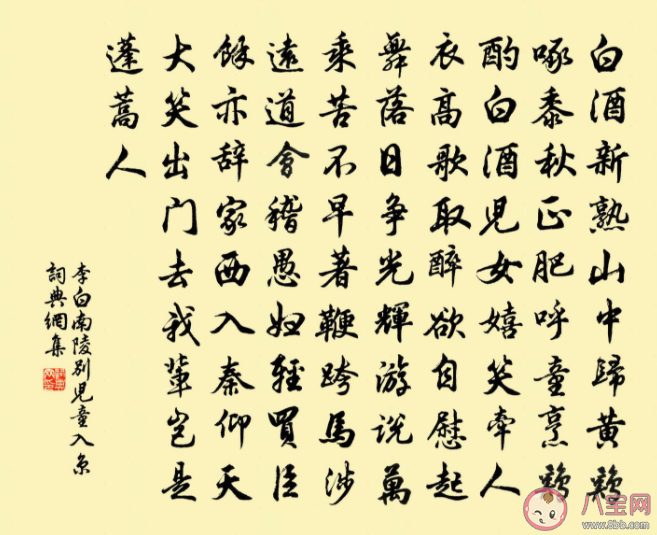 白酒新熟山中歸黃鷄
啄黍秋正肥呼童烹鷄
酌白酒兒女嬉笑牽人
衣高歌取醉欲自慰起
舞落日爭光輝游說萬
乘苦不早著鞭跨馬涉
遠道會稽愚婦輕買臣
餘亦辭家西入秦仰天
大笑出門去我輩豈是
蓬蒿人
李白南陵別兒童入京
詞典網集
八宝网
www.8bb.com